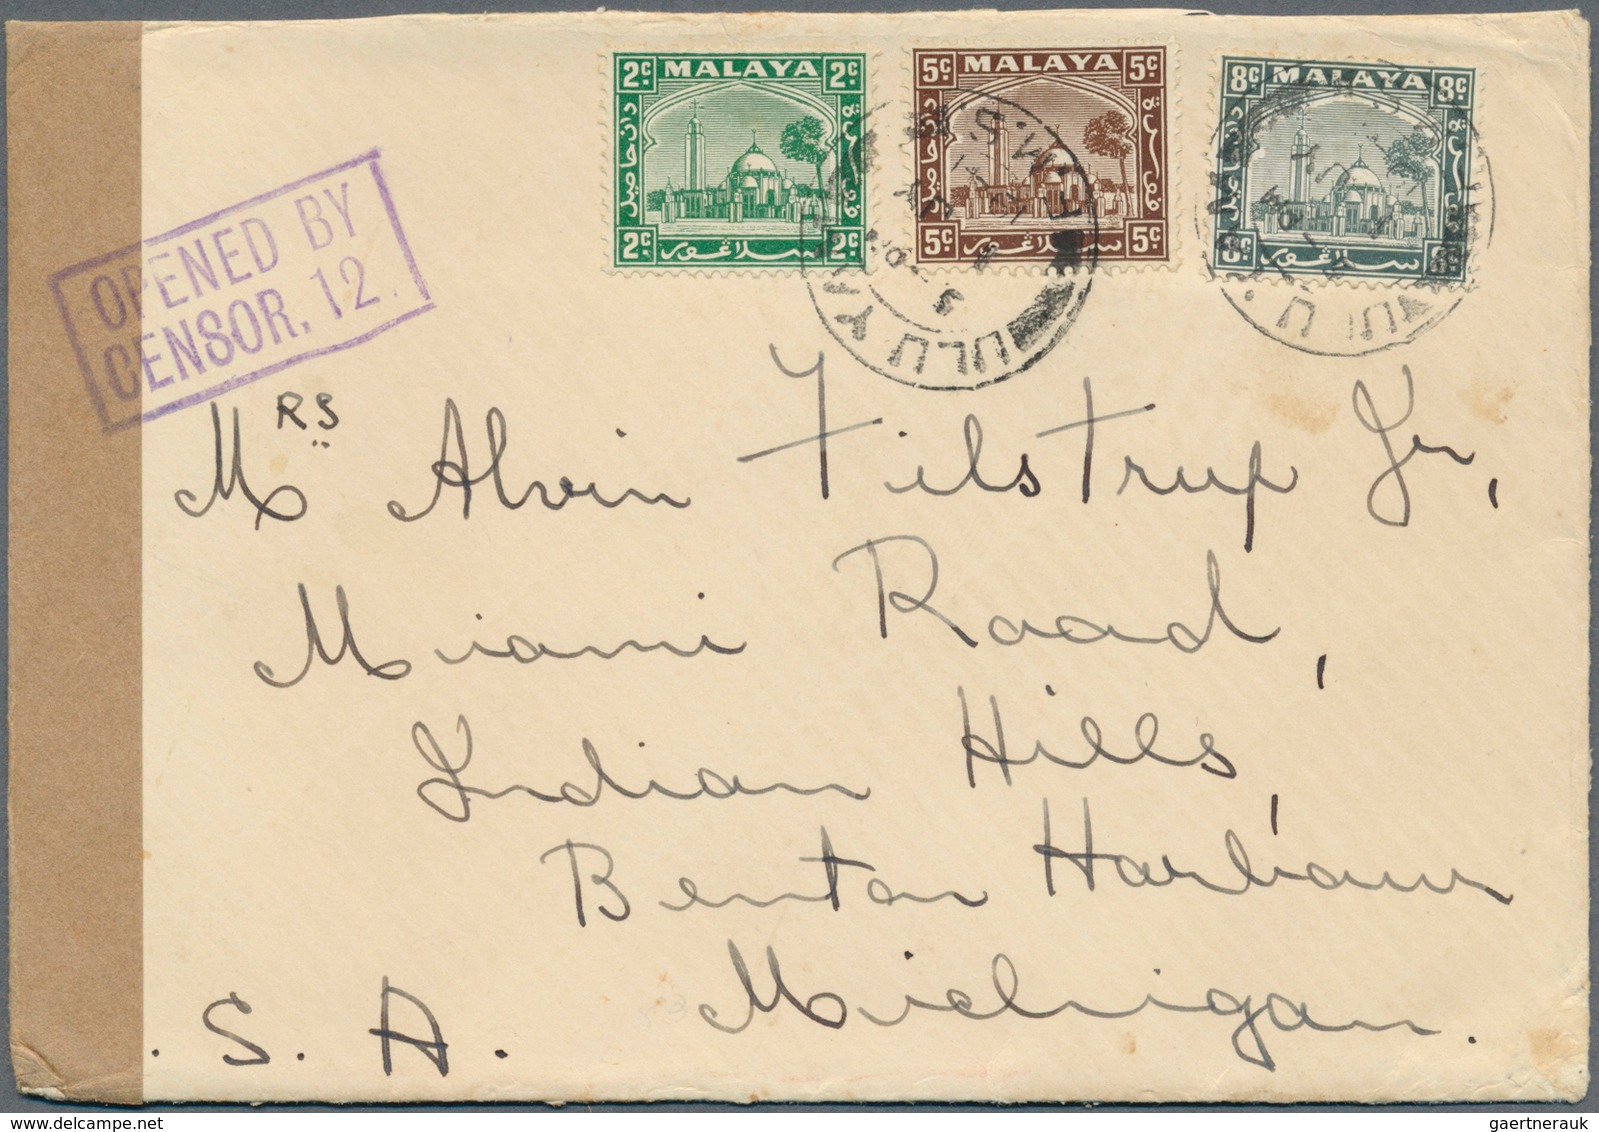 2c MALAYA 2c
2c سلاڠور 2c
5c MALAYA 5c
5c سلاڠور 5c
8c MALAYA 8c
8c سلاڠور
F.M.S.
ULU YAM
ULU
OPENED BY
CENSOR. 12.
Mrs Alvin Tilstrup Jr,
Miami Road,
Indian Hills,
Benton Harbour
Michigan.
. S. A.
gaertnerauk